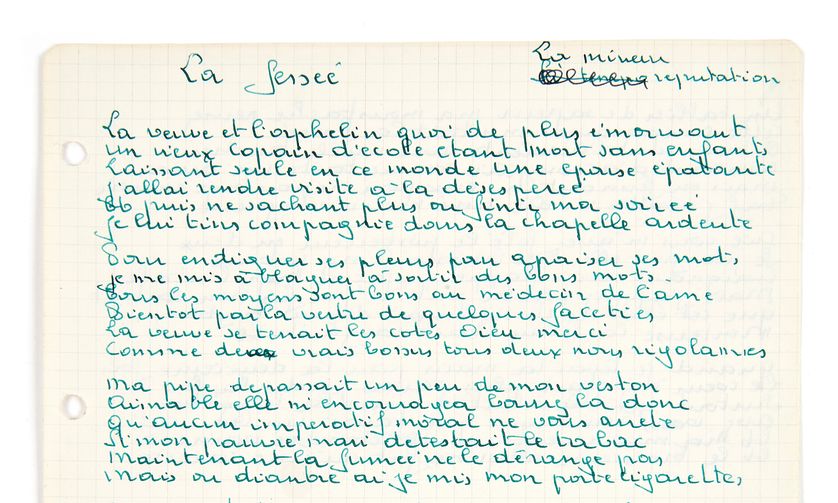 La fessée
La mineur
reputation
La veuve et l'orphelin quoi de plus émouvant
un vieux copain d'ecole etant mort sans enfants
Laissant seule en ce monde une epouse épatante
J'allai rendre visite a la desesperée
Et puis ne sachant plus ou finir ma soirée
Je lui tins compagnie dans la chapelle ardente
Pour endiguer ses pleurs pour apaiser ses mots,
je me mis a blaguer à sortir des bons mots.
Tous les moyens sont bons au médecin de l'ame
Bientot par la vertu de quelques faceties
La veuve se tenait les cotes Dieu merci
Comme de vrais bossus tous deux nous rigolames
Ma pipe depassait un peu de mon veston
Aimable elle m'encouragea bourrez la donc
qu'aucun imperatif moral ne vous arrete
Si mon pauvre mari detestait le tabac
Maintenant la fumée ne le dérange pas
Mais ou diantre ai je mis mon porte cigarettes,